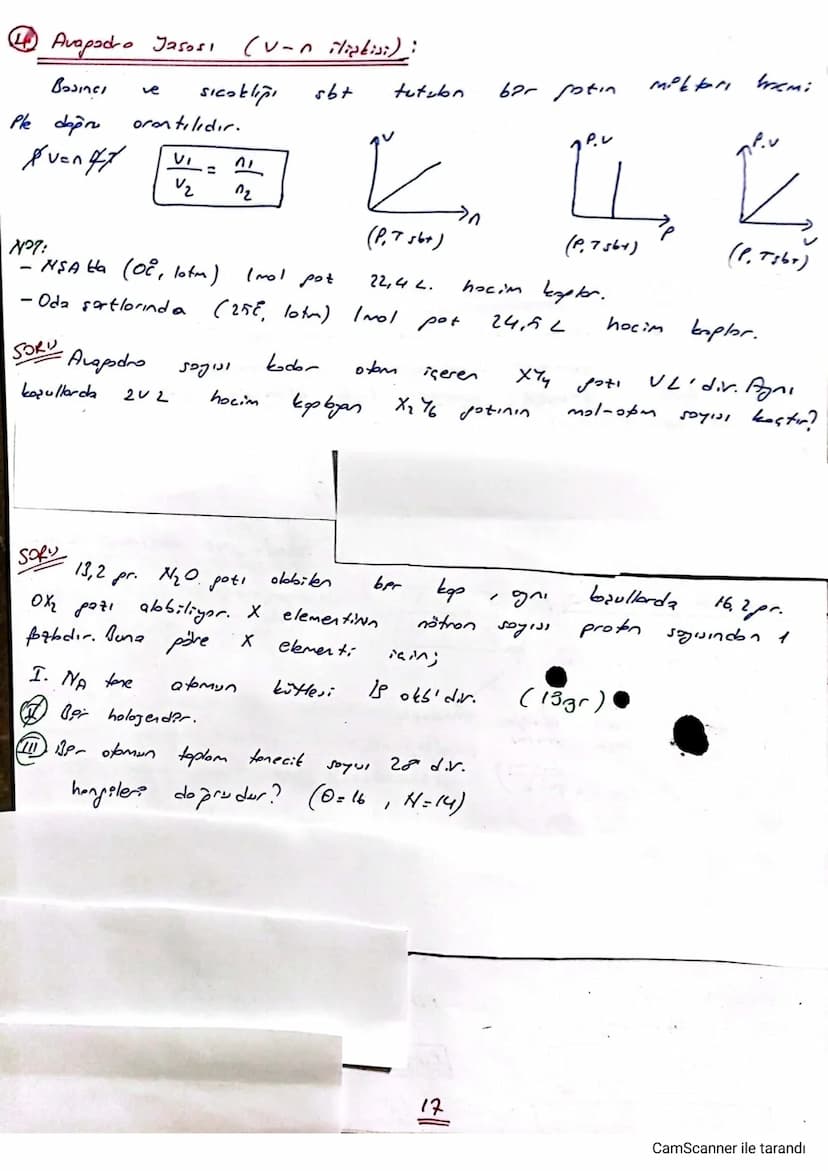 4 Avagadro Yasası (V-n ilişkisi) :
Basıncı ve sıcaklığı sbt tutulan bir gazın miktarı hacmi
ile doğru orantılıdır.
PV=nRT V1/V2 = n1/n2
V n (P,T sbt)
P.V P (P,T sbt)
P.V V (P,T sbt)
NOT:
- NŞA'da (0°C, 1atm) 1mol gaz 22,4 L hacim kaplar.
- Oda şartlarında (25°C, 1atm) 1mol gaz 24,5 L hacim kaplar.
SORU Avagadro sayısı kadar atom içeren XY4 gazı V L'dir. Aynı
koşullarda 2V L hacim kaplayan X2Y6 gazının mol-atom sayısı kaçtır?
SORU 13,2 gr. N2O gazı alabilen bir kap, aynı koşullarda 16,2 gr.
OX2 gazı alabiliyor. X elementinin nötron sayısı proton sayısından 1
fazladır. Buna göre X elementi için;
I. NA tane atomun kütlesi 19 akb'dir. (19gr)
II Bir halojendir.
III Bir atomun toplam tanecik sayısı 28 dir.
hangileri doğrudur? (O=16, N=14)
17
CamScanner ile tarandı